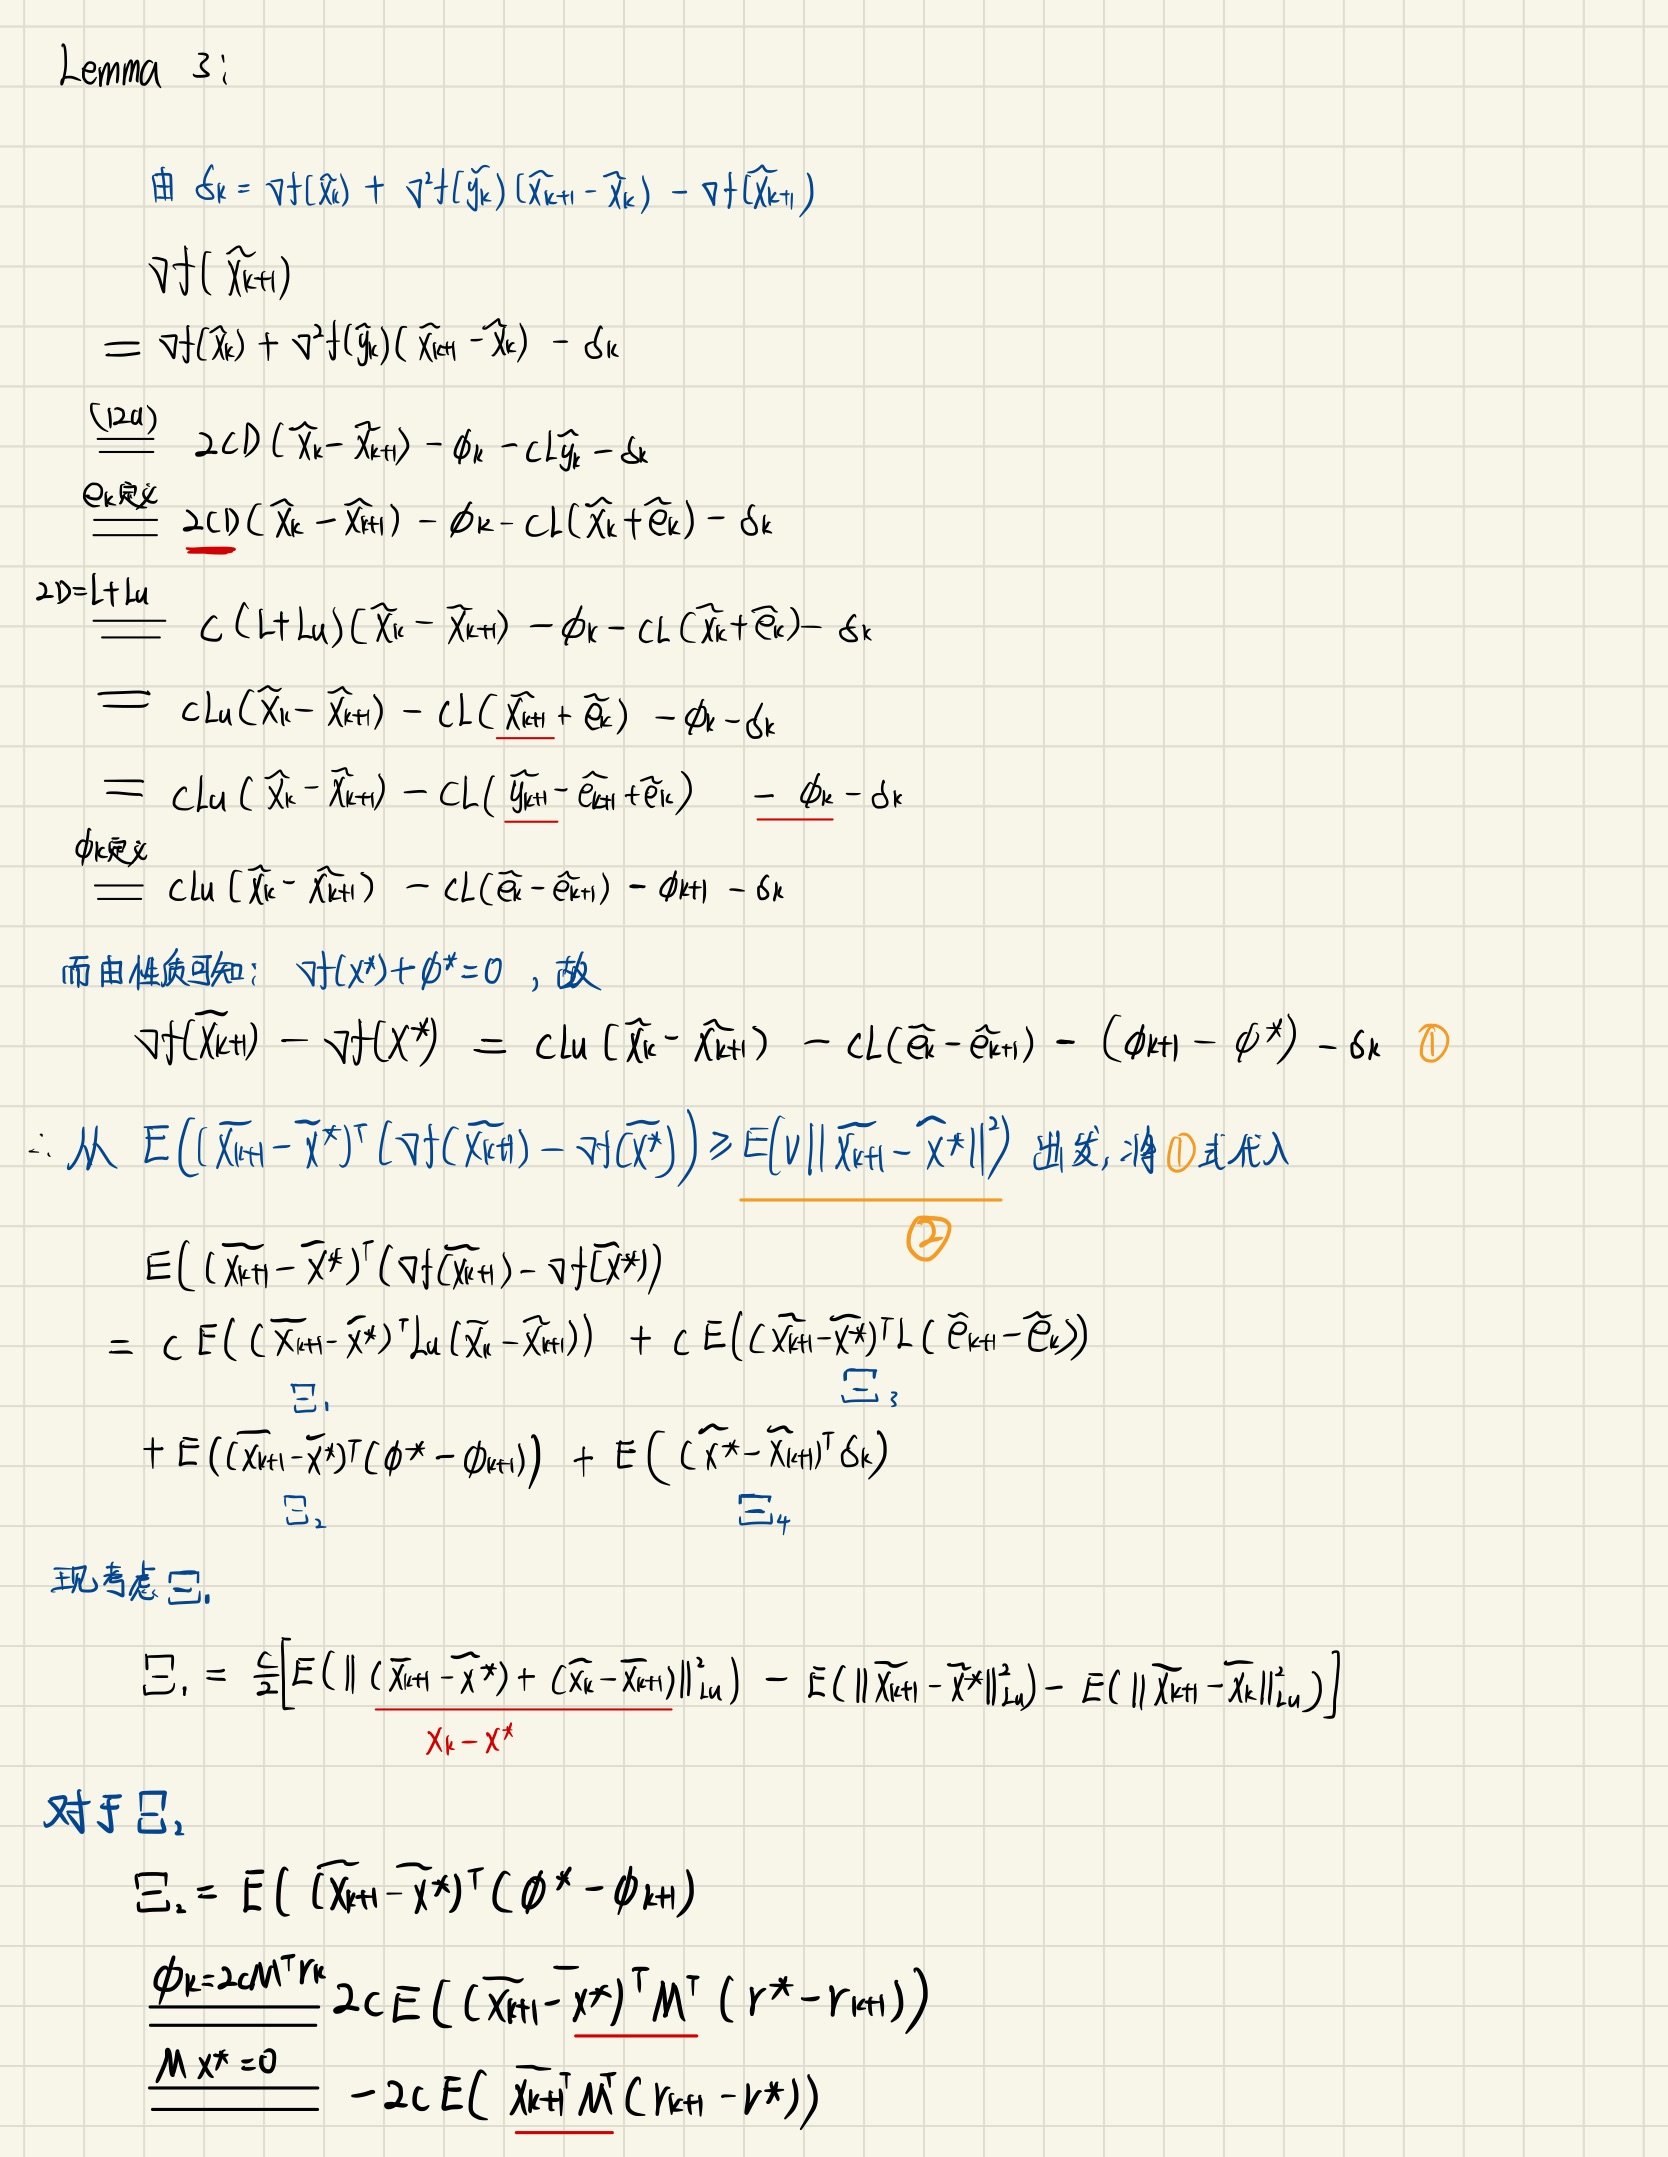 Lemma 3:
由 δₖ = ∇f(x̃ₖ) + ∇²f(ỹₖ)(x̃ₖ₊₁ - x̃ₖ) - ∇f(x̃ₖ₊₁)
∇f(x̃ₖ₊₁)
= ∇f(x̃ₖ) + ∇²f(ỹₖ)(x̃ₖ₊₁ - x̃ₖ) - δₖ
(12a)
= 2cD(x̃ₖ - x̃ₖ₊₁) - ϕₖ - cLỹₖ - δₖ
eₖ定义
= 2cD(x̃ₖ - x̃ₖ₊₁) - ϕₖ - cL(x̃ₖ + ẽₖ) - δₖ
2D=L+Lu
= c(L+Lu)(x̃ₖ - x̃ₖ₊₁) - ϕₖ - cL(x̃ₖ + ẽₖ) - δₖ
= cLu(x̃ₖ - x̃ₖ₊₁) - cL(x̃ₖ₊₁ + ẽₖ) - ϕₖ - δₖ
= cLu(x̃ₖ - x̃ₖ₊₁) - cL(ỹₖ₊₁ - ẽₖ₊₁ + ẽₖ) - ϕₖ - δₖ
ϕₖ定义
= cLu(x̃ₖ - x̃ₖ₊₁) - cL(ẽₖ - ẽₖ₊₁) - ϕₖ₊₁ - δₖ
而由性质可知: ∇f(x*) + ϕ* = 0 , 故
∇f(x̃ₖ₊₁) - ∇f(x*) = cLu(x̃ₖ - x̃ₖ₊₁) - cL(ẽₖ - ẽₖ₊₁) - (ϕₖ₊₁ - ϕ*) - δₖ ①
∴ 从 E((x̃ₖ₊₁ - x̃*)ᵀ(∇f(x̃ₖ₊₁) - ∇f(x̃*)) ≥ E(ν||x̃ₖ₊₁ - x̃*||²) 出发, 将①式代入
②
E((x̃ₖ₊₁ - x̃*)ᵀ(∇f(x̃ₖ₊₁) - ∇f(x̃*))
= c E((x̃ₖ₊₁ - x̃*)ᵀLu(x̃ₖ - x̃ₖ₊₁)) + c E((x̃ₖ₊₁ - x̃*)ᵀL(ẽₖ₊₁ - ẽₖ))
Ξ₁ Ξ₃
+ E((x̃ₖ₊₁ - x̃*)ᵀ(ϕ* - ϕₖ₊₁)) + E((x̃* - x̃ₖ₊₁)ᵀδₖ)
Ξ₂ Ξ₄
现考虑 Ξ₁
Ξ₁ = c/2[E(||(x̃ₖ₊₁ - x̃*) + (x̃ₖ - x̃ₖ₊₁)||²_Lu) - E(||x̃ₖ₊₁ - x̃*||²_Lu) - E(||x̃ₖ₊₁ - x̃ₖ||²_Lu)]
xₖ - x*
对于 Ξ₂
Ξ₂ = E((x̃ₖ₊₁ - x̃*)ᵀ(ϕ* - ϕₖ₊₁)
ϕₖ=2cMᵀrₖ
= 2cE((x̃ₖ₊₁ - x̃*)ᵀMᵀ(r* - rₖ₊₁))
Mx*=0
= -2cE(x̃ₖ₊₁ᵀMᵀ(rₖ₊₁ - r*))